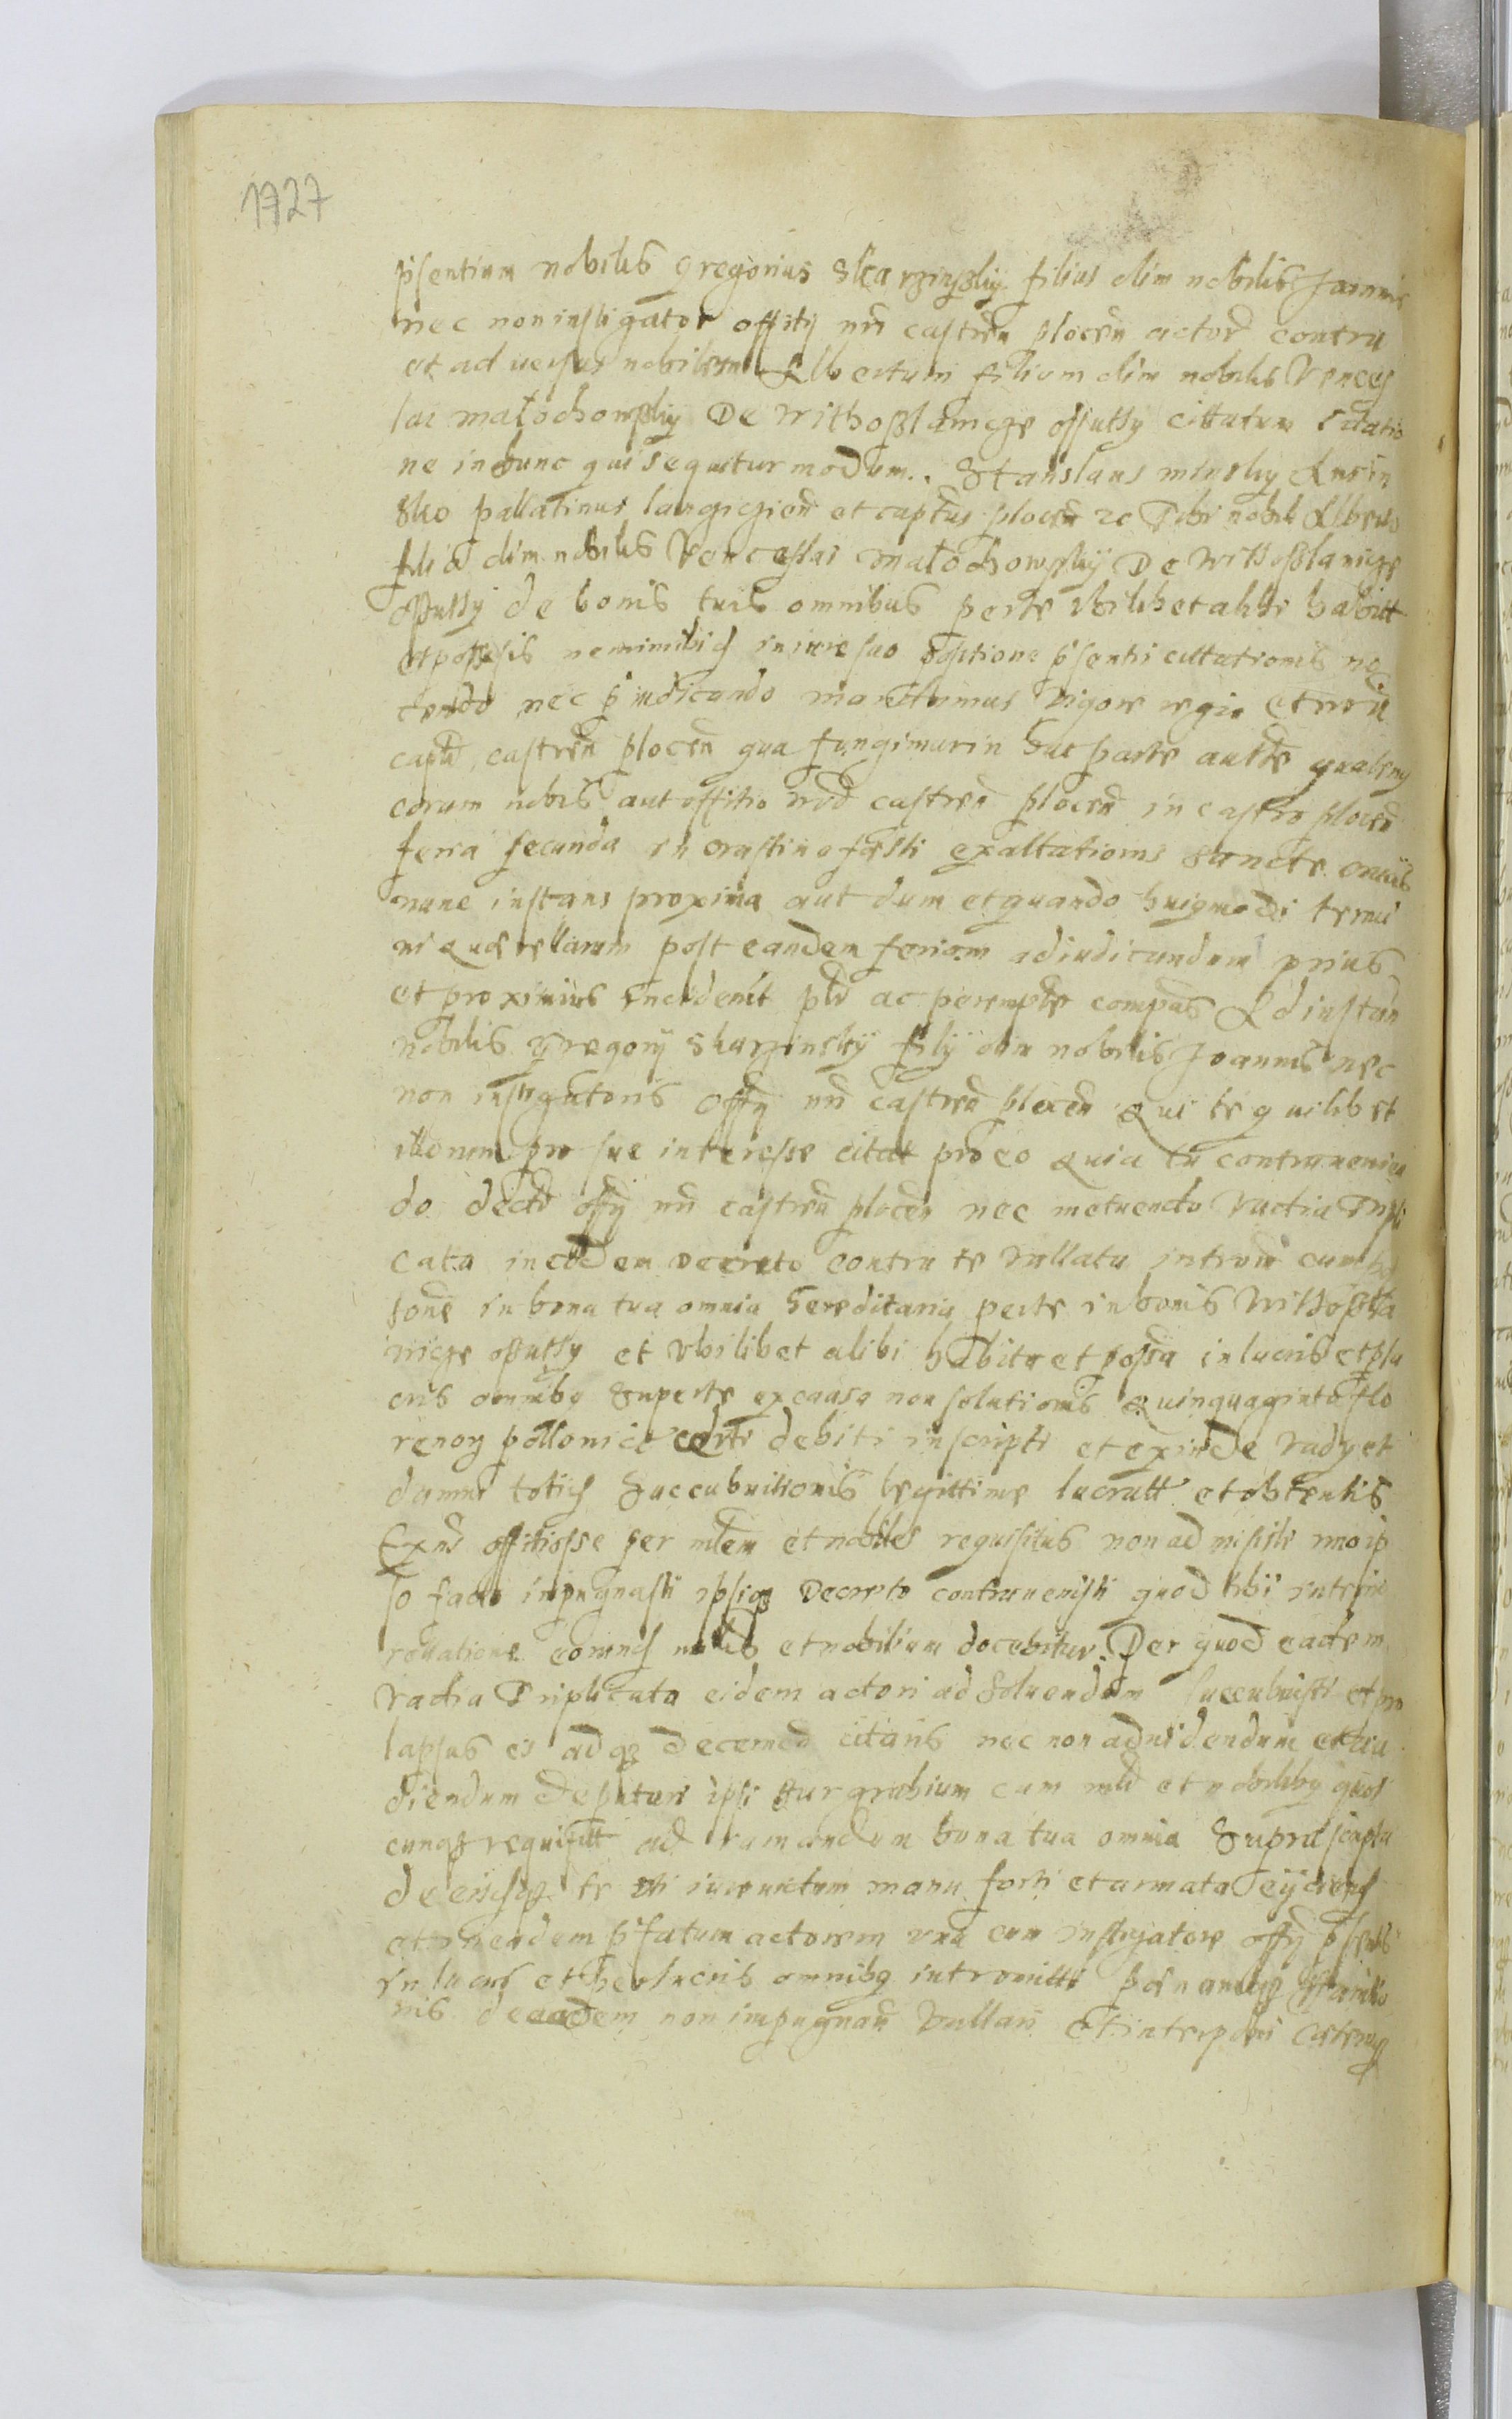 1727
psentium nobilis Gregorius Skarzinsky filius olim nobilis Joannis
nec non instigator offitij nri castren plocen actor contra
et aduersus nobilem Albertum filium olim nobilis Vences
lai malochowsky De withoslawicze opulsy cittatum citatio
ne in hunc qui sequitur modum. Stanislaus minsky de
sko pallatinus lanczicien et captus plocen zc Tibi nobili Alberto
filio olim nobilis Venceslai malochowsky De withoslawicze
opulsy de bonis tuis omnibus peste vbilibet alibi habitt
et possesis neminibusq in iure suo positione psentis cittationis no
cendo nec piudicando mandamus vigore regio et nrū
captū castren plocen qua fungimur in hac parte autte quatenus
coram nobis aut offitio nrō castren plocen in castro plocen
feria secunda in crastino festi exaltationis sancte crucis
nunc instans proxima aut dum et quando huigmodi termi
ni querellarum post eandem feriam adiudicandum prius
et proximius inciderint plr ac perempte compas Ad instan
nobilis Gregorij Skarzinsky filij olim nobilis Joannis nec
non instigatoris offy nri castren plocen Qui te quilibet
illorum pro suo interesse citat pro eo Quia tu contraueniendo
do decto offy nri castren plocen nec metuendo vadia Tripli
cata in eodem decreto contra te vallata introm cum
sone in bona tua omnia hereditaria peste in bonis withosla
wicze opulsy et vbilibet alibi habita et possa in lucris et plu
cris omnibq superte ex causa non solutionis Quinquaginta flo
renoq pollonice certi debiti inscripti et exinde vady et
damni totiq succubuitionis legittime lucratt et obtentis
Exns offitiosse per mlem et nobiles requisitus non admisisti imo ip
so facto inpugnasti ipsiq Decreto contrauenisti quod tibi
rouatione eorumq nalis et nobilium docebitur. Per quod eadem
vadia Triplicata eidem actori ad soluendum succubuisti et pro
lapsus es ad qz decernen citaris nec non ad uidendum et au
diendum deputari ipsi burgrabium cum mli et nobilibq quos
cunqz requisitt ad bona tua omnia suprascripta
de eiisqz te manu forti et armata eijciendq
et in eadem pfatum actorem vna cum instigatore offy psentis
in lucris et perlucris omnibq intromitti penamqz
nis de eadem non impugnan vallari et interponi ceterusqz